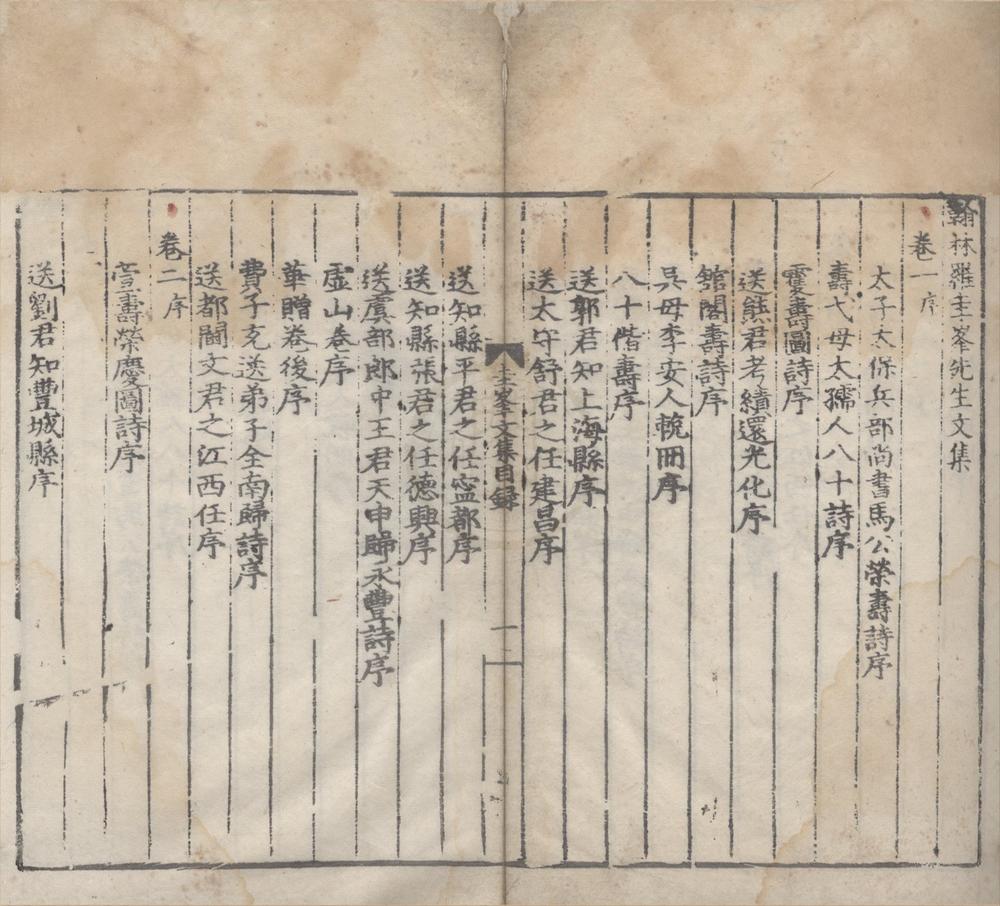 翰林羅圭峯先生文集
卷一 序
太子太保兵部尚書馬公榮壽詩序
壽弋母太孺人八十詩序
雙壽圖詩序
送熊君考績還光化序
館閣壽詩序
吳母李安人輓冊序
八十偕壽序
送郭君知上海縣序
送太守舒君之任建昌序
圭峯文集目錄
一
送知縣平君之任寧都序
送知縣張君之任德興序
送虞部郎中王君天申歸永豐詩序
虛山卷序
華贈卷後序
費子充送弟子全南歸詩序
送都閫文君之江西任序
卷二 序
壽榮慶圖詩序
送劉君知豐城縣序